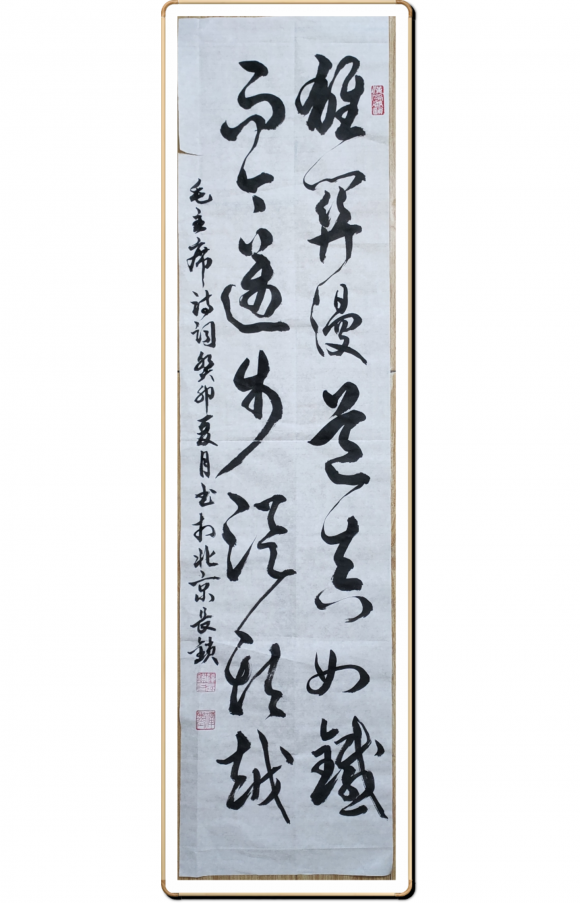 雄関漫道真如鐵
而今邁步從頭越
毛主席诗词癸卯夏月书於北京長